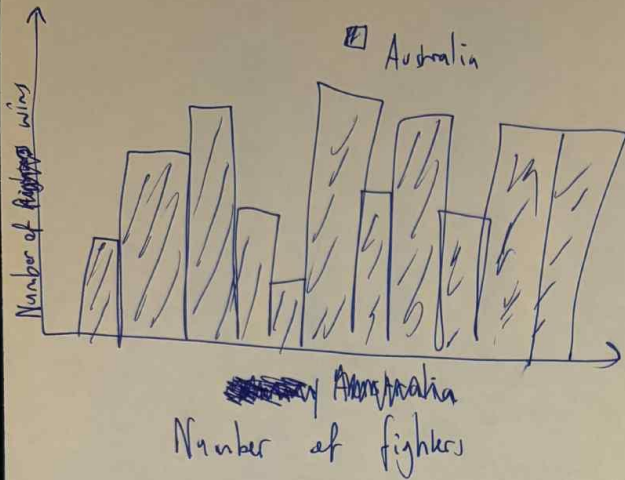 Australia
Number of wins
Number of fighters